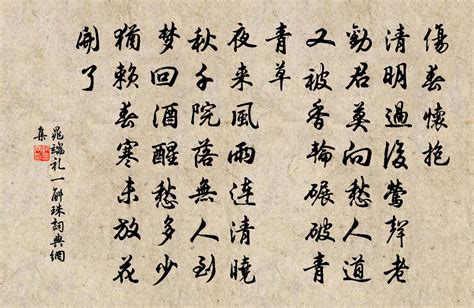 傷春懷抱
清明過後鶯聲老
勸君莫向愁人道
又被香輪碾破青
青草
夜来風雨连清曉
秋千院落無人到
梦回酒醒愁多少
猶賴春寒未放花
開了
晁端礼一斛珠詞典網
集